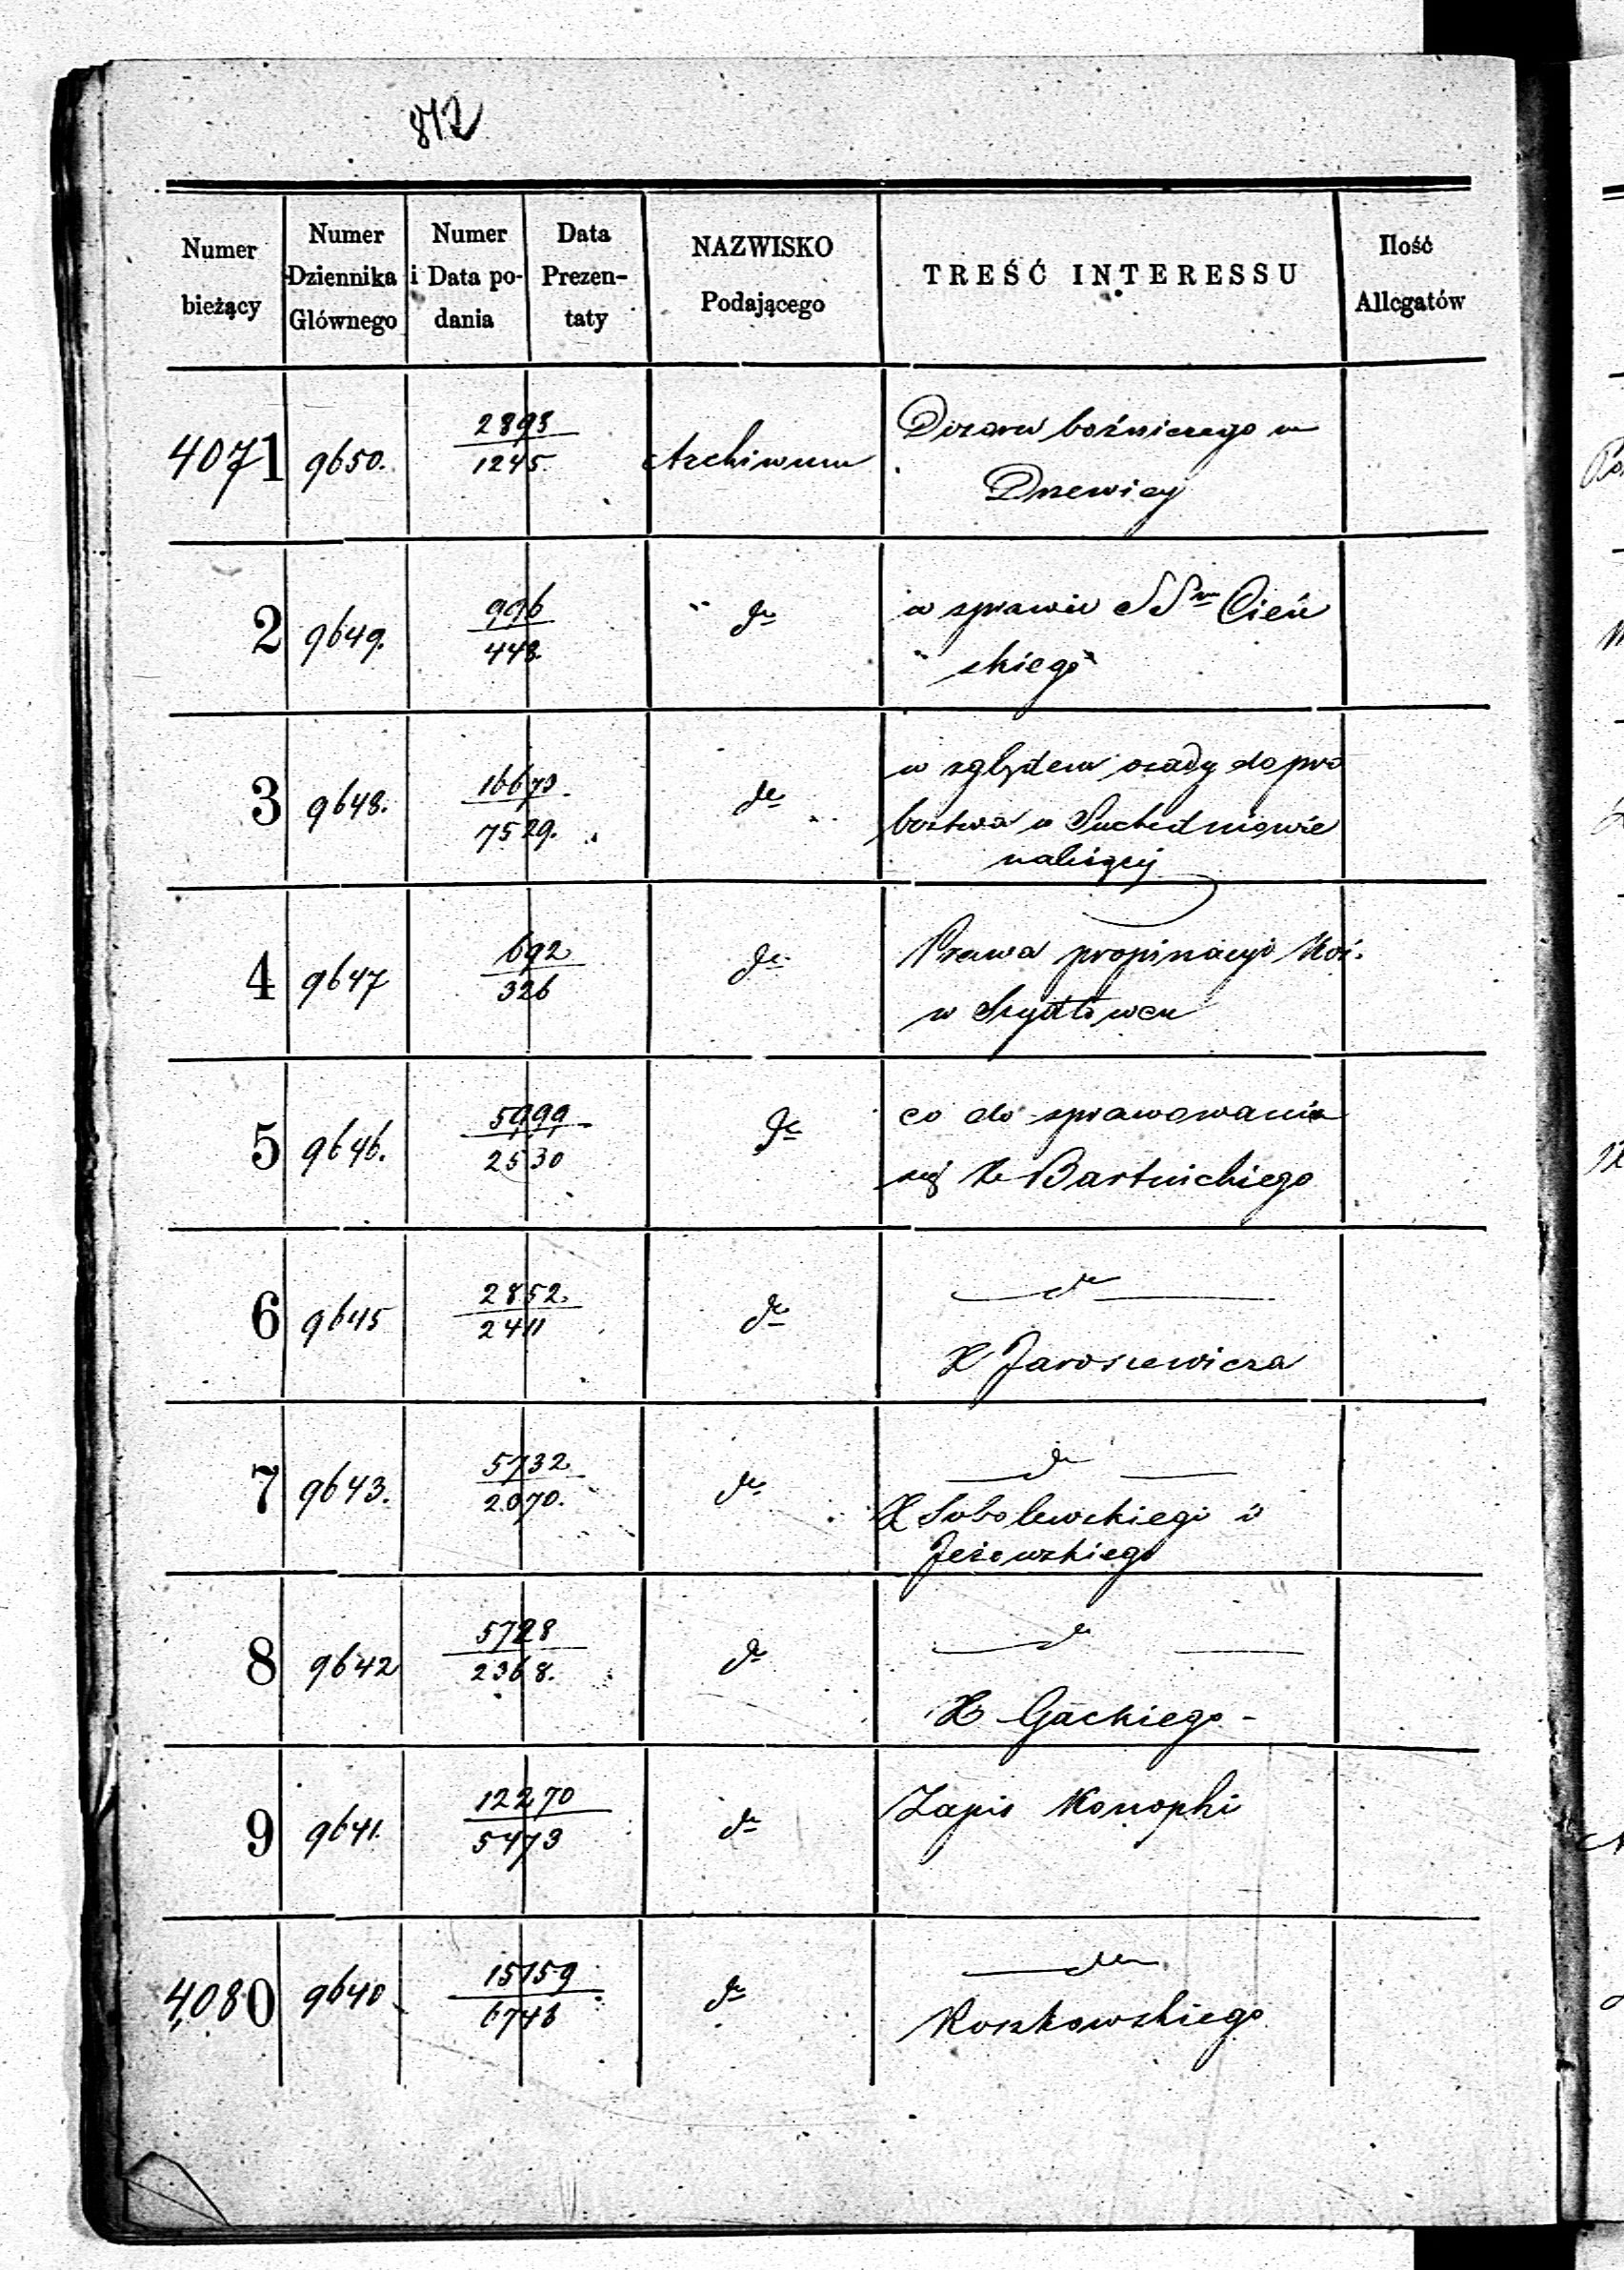 872
Numer bieżący
Numer Dziennika Głównego
Numer i Data podania
Data Prezentaty
NAZWISKO Podającego
TREŚĆ INTERESSU
Ilość Allegatów
4071 9650. 2893/1245. Archiwum Dozoru bożniczego w
Drzewicy
2 9649. 996/448. do w sprawie SSrów Cień
skiego
3 9648. 16673/7529. do w zględem osady do pro
bostwa w Suchedniowie
należącej
4 9647 692/326 do Prawa propinacyi
w Szydłowcu
5 9646. 5099/2530 do co do sprawowania
się X Bartnickiego
6 9645 2852./2411 do do
X Jaroszewicza
7 9643. 5732/2070. do do
X Sobolewskiego i
Jeżewskiego
8 9642 5728/2368. do do
X Gackiego -
9 9641. 12270/5473 do Zapis Konopki
4,080 9640 15159/6746 do do
Koszkowskiego